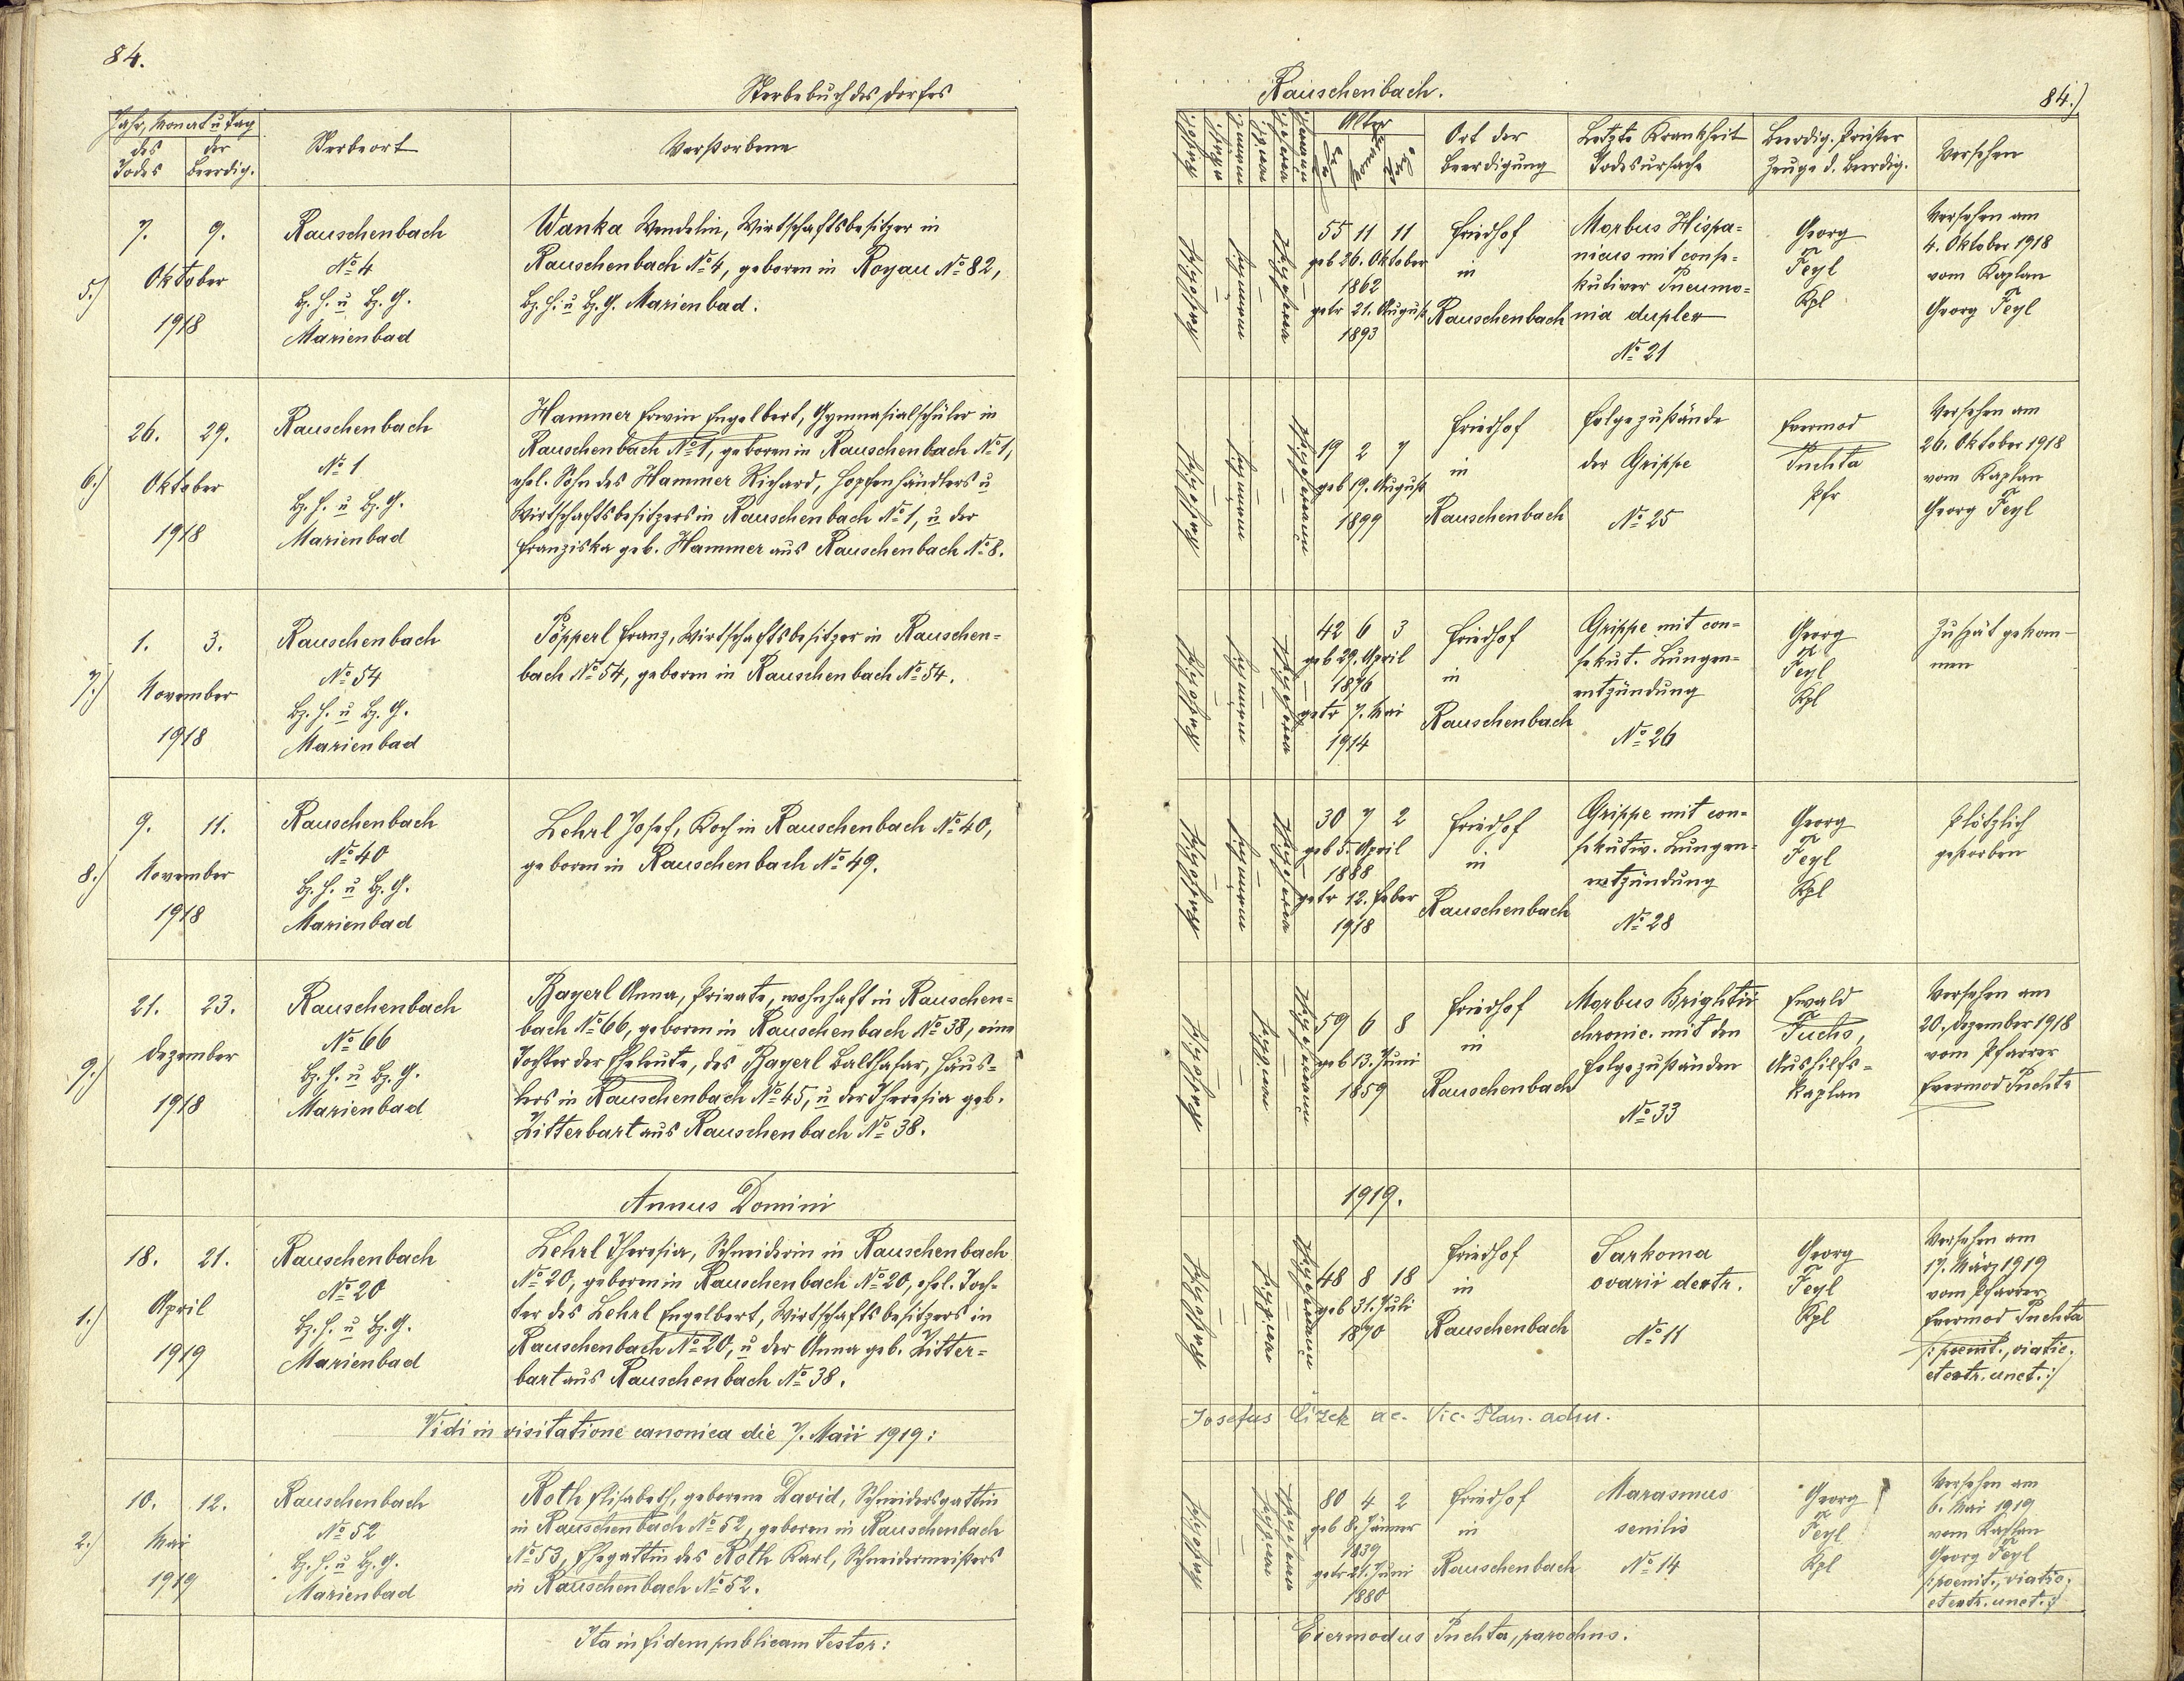 84.
Sterbebuch des Dorfes
Jahr, Monat u Tag
des Todes
der Beerdig.
Sterbeort
Verstorbene
5.)
7. 9.
Oktober
1918
Rauschenbach
No 4
Bz. H. u Bz. G.
Marienbad
Wanka Wendelin, Wirtschaftsbesitzer in
Rauschenbach No 4, geboren in Royau No 82,
Bz. H. u Bz. G. Marienbad.
6.)
26. 29.
Oktober
1918
Rauschenbach
No 1
Bz. H. u Bz. G.
Marienbad
Hammer Erwin Engelbert, Gymnasialschüler in
Rauschenbach No 1, geboren in Rauschenbach No 1,
ehel. Sohn des Hammer Richard, Hopfenhändlers u
Wirtschaftsbesitzers in Rauschenbach No 1, u der
Franziska geb. Hammer aus Rauschenbach No 8.
7.)
1. 3.
November
1918
Rauschenbach
No 54
Bz. H. u Bz. G.
Marienbad
Pöpperl Franz, Wirtschaftsbesitzer in Rauschen=
bach No 54, geboren in Rauschenbach No 54.
8.)
9. 11.
November
1918
Rauschenbach
No 40
Bz. H. u Bz. G.
Marienbad
Lehrl Josef, Koch in Rauschenbach No 40,
geboren in Rauschenbach No 49.
9.)
21. 23.
Dezember
1918
Rauschenbach
No 66
Bz. H. u Bz. G.
Marienbad
Bayerl Anna, Private, wohnhaft in Rauschen=
bach No 66, geboren in Rauschenbach No 38, eine
Tochter der Eheleute, des Bayerl Balthasar, Häus=
lers in Rauschenbach No 45, u der Theresia geb.
Zitterbart aus Rauschenbach No 38.
Annus Domini
1.)
18. 21.
April
1919
Rauschenbach
No 20
Bz. H. u Bz. G.
Marienbad
Lehrl Theresia, Schneiderin in Rauschenbach
No 20, geboren in Rauschenbach No 20, ehel. Toch=
ter des Lehrl Engelbert, Wirtschaftsbesitzers in
Rauschenbach No 20, u der Anna geb. Zitter=
bart aus Rauschenbach No 38.
Vidi in visitatione canonica die 7. Maii 1919:
2.)
10. 12.
Mai
1919
Rauschenbach
No 52
Bz. H. u Bz. G.
Marienbad
Roth Elisabeth, geborene David, Schneidersgattin
in Rauschenbach No 52, geboren in Rauschenbach
No 53, Ehegattin des Roth Karl, Schneidermeisters
in Rauschenbach No 52.
Ita in fidem publicam testor:
Rauschenbach.
84.)
Alter
Ort der
Beerdigung
Letzte Krankheit
Todesursache
Beerdig. Priester
Zeuge d. Beerdig.
Versehen
katholisch
männl.
verheiratet
55 11 11
geb 26. Oktober
1862
getr 21. August
1893
Friedhof
in
Rauschenbach
Morbus Hispa=
nicus mit conse=
kutiver Pneumo=
nia duplex
No 21
Georg
Feyl
Kpl
Versehen am
4. Oktober 1918
vom Kaplan
Georg Feyl
katholisch
19 2 7
geb 19. August
1899
Friedhof
in
Rauschenbach
Folgezustände
der Grippe
No 25
Evermod
Puchta
Pfr
Versehen am
26. Oktober 1918
vom Kaplan
Georg Feyl
katholisch
42 6 3
geb 29. April
1876
getr 7. Mai
1914
Friedhof
in
Rauschenbach
Grippe mit con=
sekut. Lungen=
entzündung
No 26
Georg
Feyl
Kpl
Zu spät gekom=
men
katholisch
30 7 2
geb 5. April
1888
getr 12. Feber
1918
Friedhof
in
Rauschenbach
Grippe mit con=
sekutiv. Lungen=
entzündung
No 28
Georg
Feyl
Kpl
Plötzlich
gestorben
katholisch
59 6 8
geb 13. Juni
1859
Friedhof
in
Rauschenbach
Morbus Brightii
chronic. mit den
Folgezuständen
No 33
Ewald
Fuchs,
Aushilfs=
kaplan
Versehen am
20. Dezember 1918
vom Pfarrer
Evermod Puchta
1919.
katholisch
48 8 18
geb 31. Juli
1870
Friedhof
in
Rauschenbach
Sarkoma
ovarii dextr.
No 11
Georg
Feyl
Kpl
Versehen am
17. März 1919
vom Pfarrer
Evermod Puchta
/: poenit., viatic.
et extr. unct. :/
Josefus Cizek ae. Vic. Plan. adm.
katholisch
80 4 2
geb 8. Jänner
1839
getr 21. Juni
1880
Friedhof
in
Rauschenbach
Marasmus
senilis
No 14
Georg
Feyl
Kpl
Versehen am
6. Mai 1919
vom Kaplan
Georg Feyl
/: poenit., viatic.
et extr. unct. :/
Evermodus Puchta, parochus.